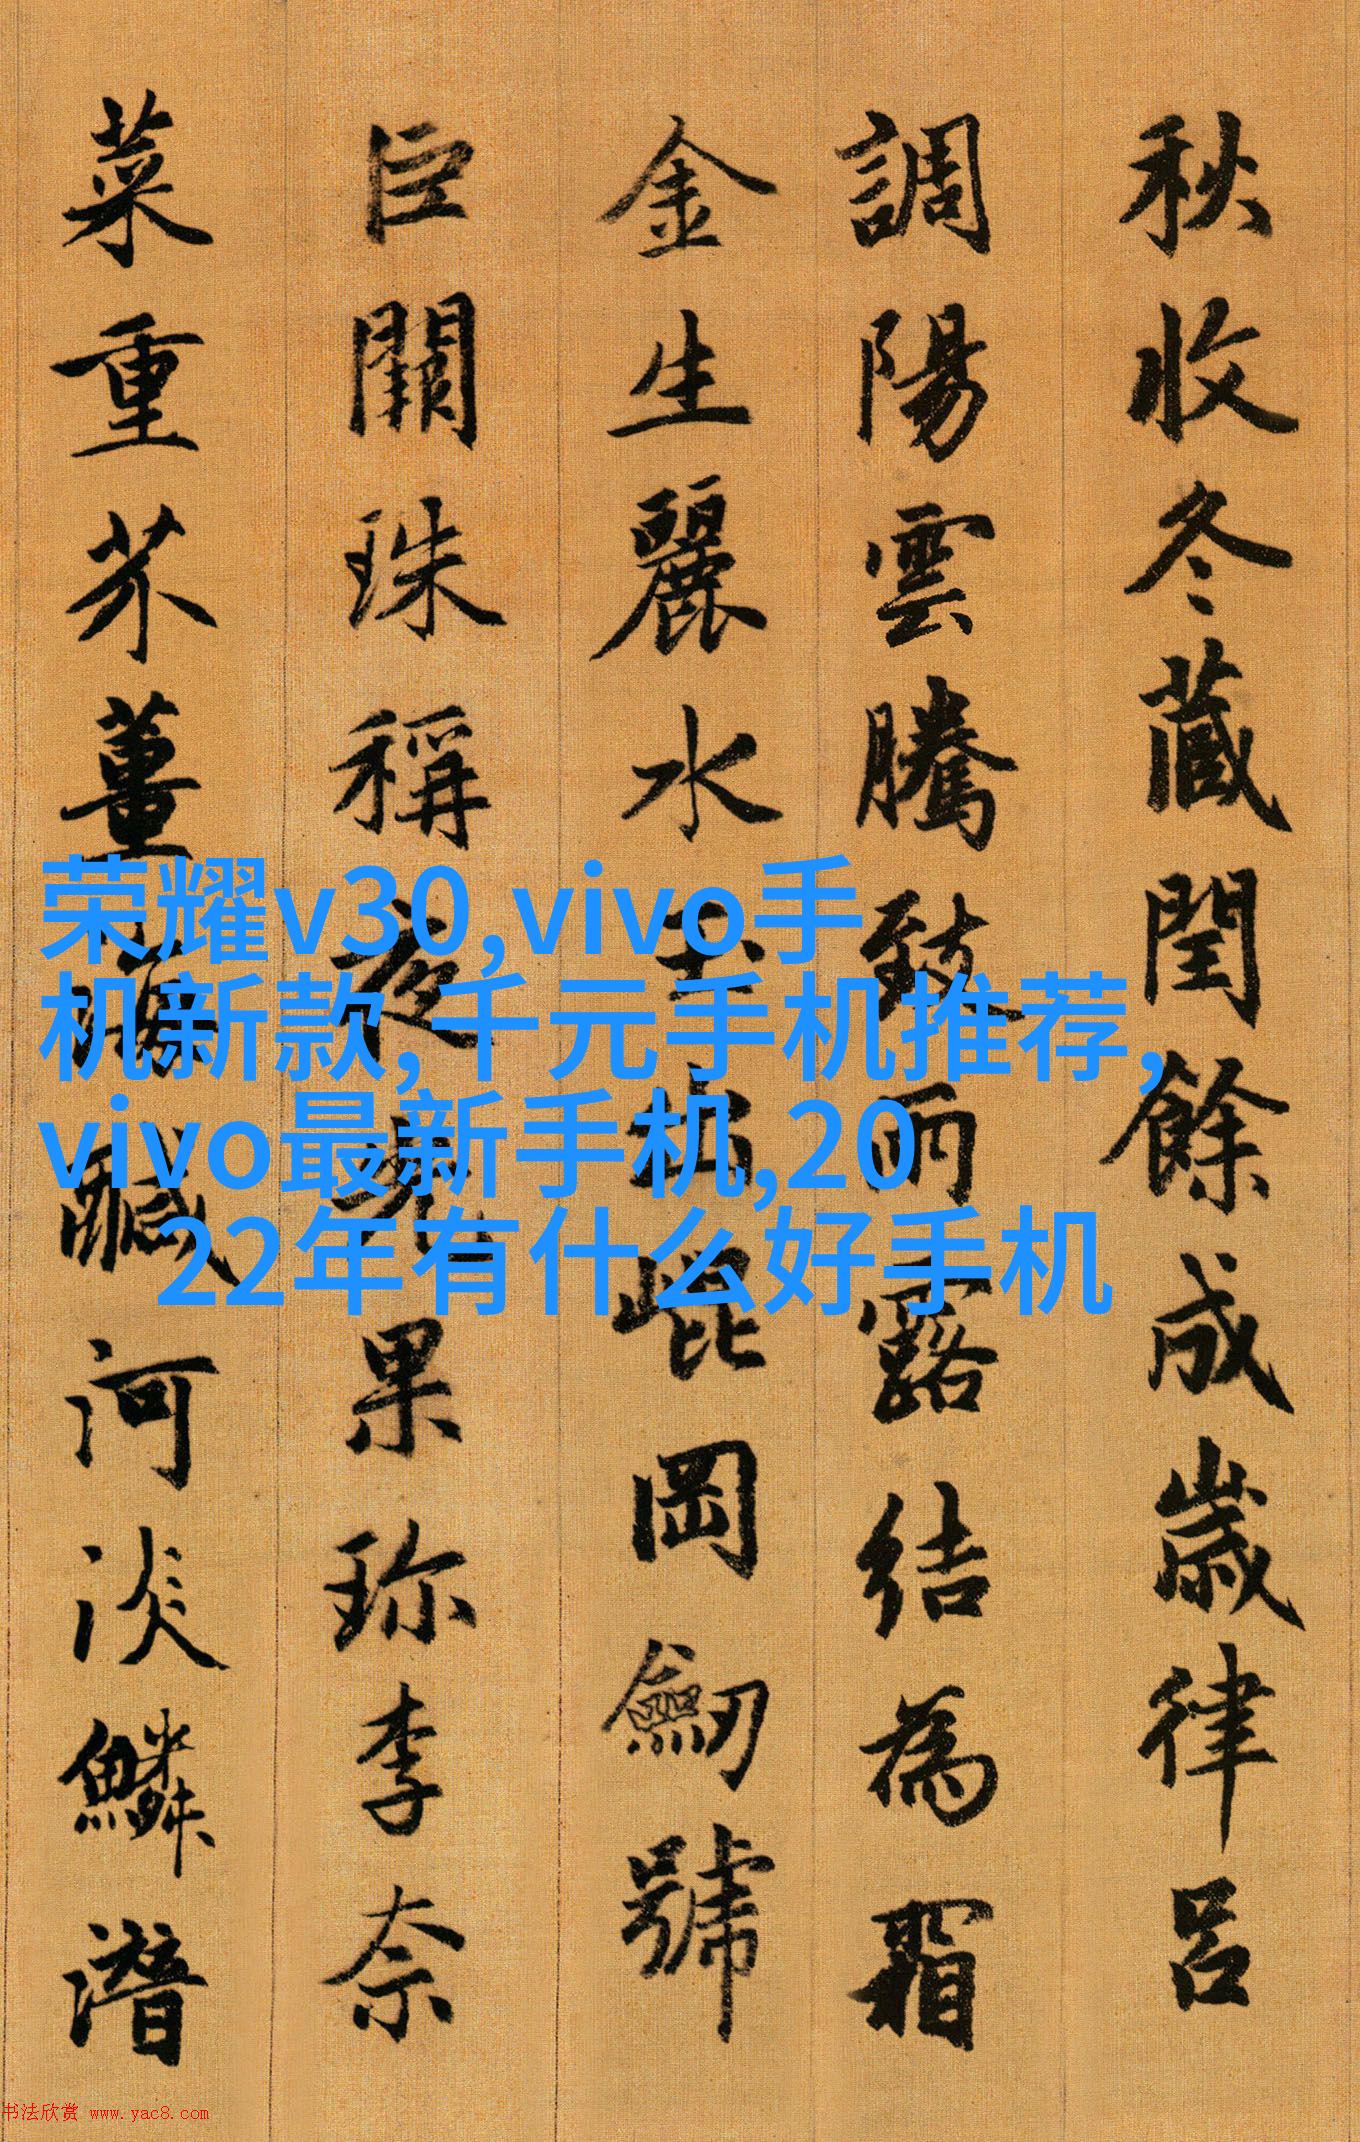 秋收冬藏閏餘成歲律呂
調陽雲騰致雨露結為霜
金生麗水玉出崐岡劒號
巨闕珠稱夜光果珎李奈
菜重芥薑海鹹河淡鱗潛
荣耀v30,vivo手
机新款,千元手机推荐,
vivo最新手机,20
22年有什么好手机
书法欣赏 www.yac8.com